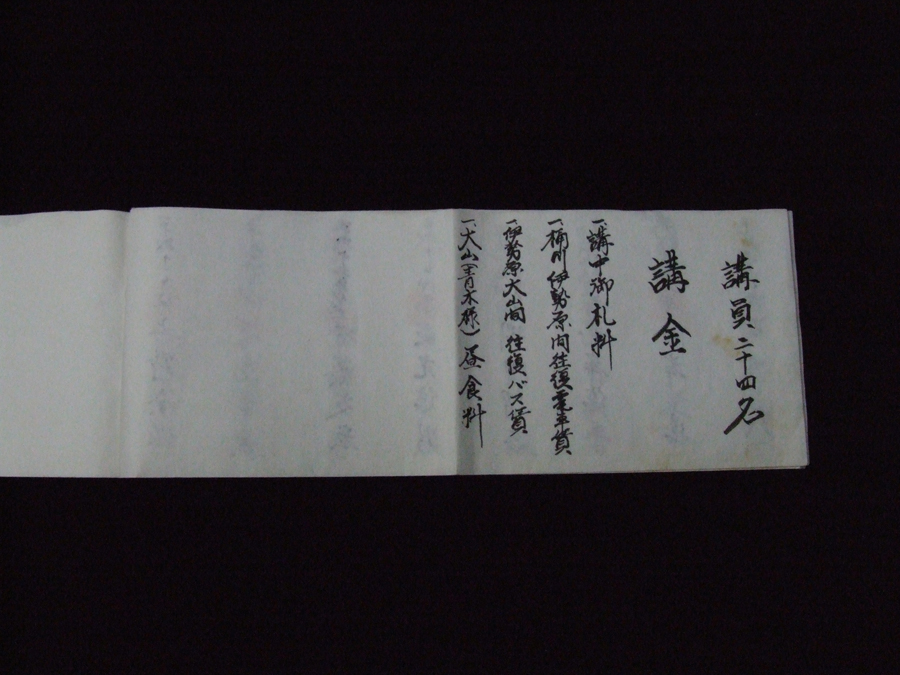 講員二十四名
講金
一、講中御札料
一、桶川伊勢原間往復電車賃
一、伊勢原大山間 往復バス賃
一、大山(青木様)昼食料